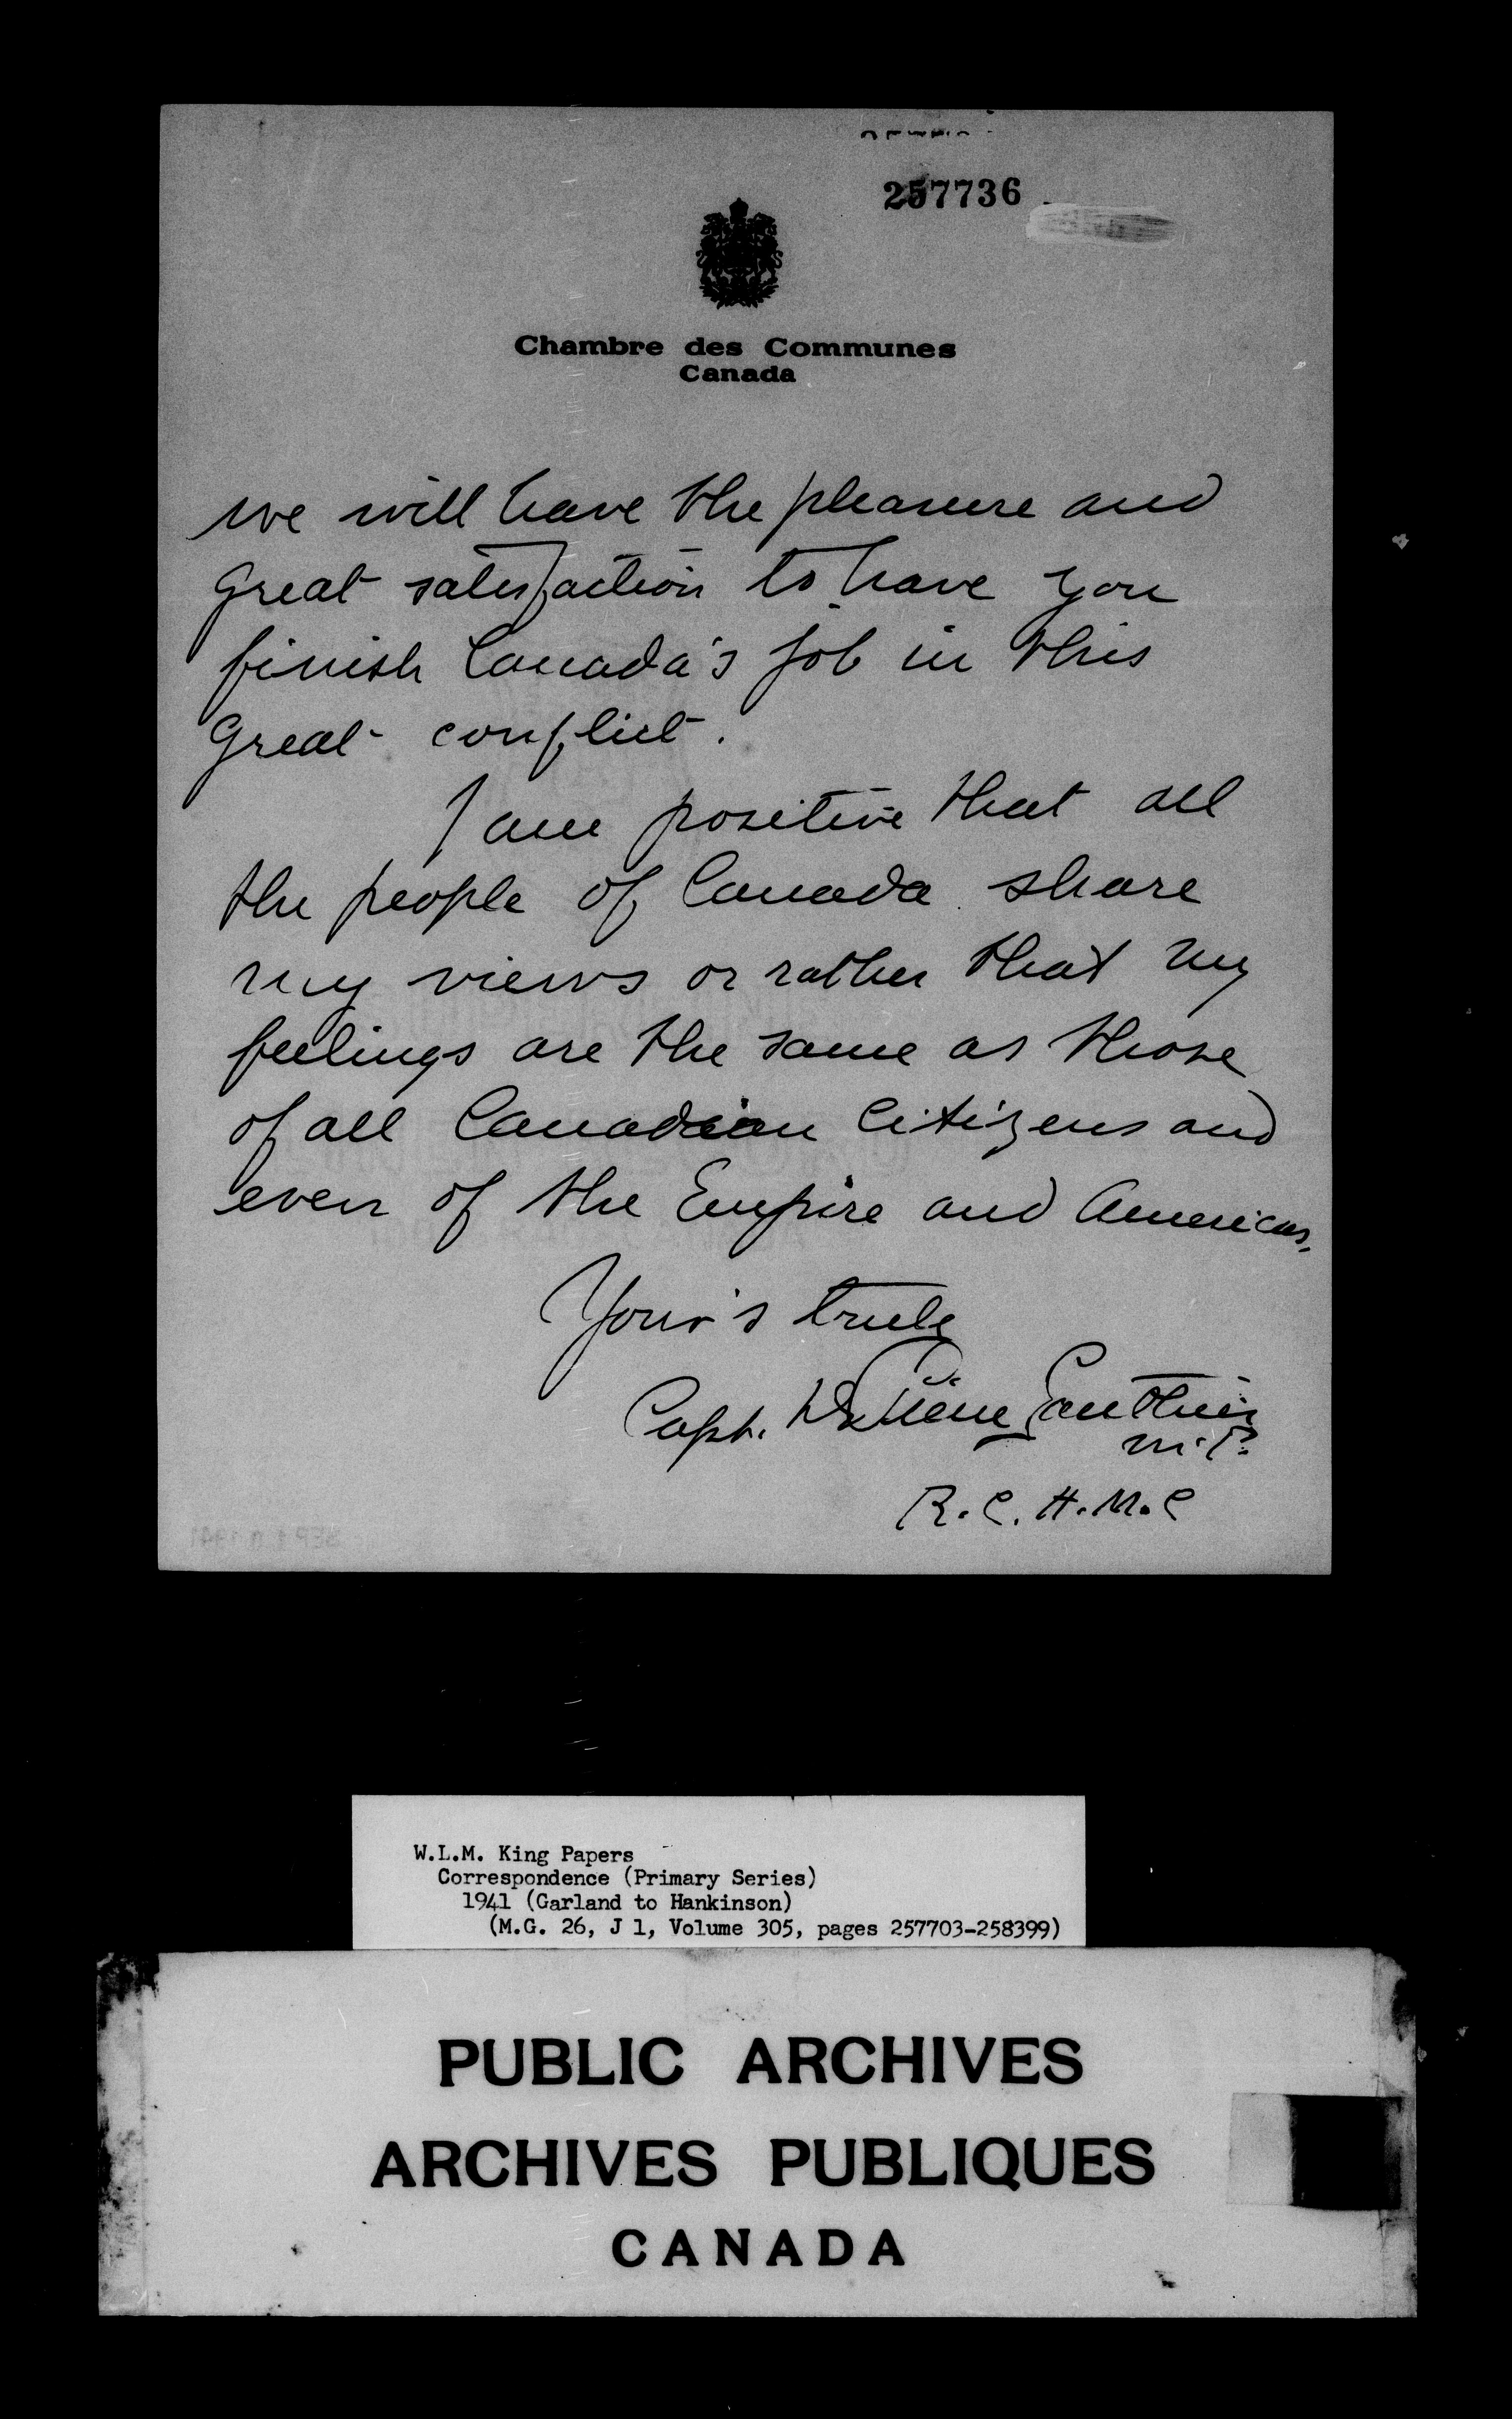 257736
Chambre des Communes
Canada
we will have the pleasure and
great satisfaction to have you
finish Canada's job in this
great conflict.
I am positive that all
the people of Canada share
my views or rather that my
feelings are the same as those
of all Canadian Citizens and
even of the Empire and Americas,
Your's truly
Capt. Gauthier
M.P.
R.C.H.M.C
W.L.M. King Papers
Correspondence (Primary Series)
1941 (Garland to Hankinson)
(M.G. 26, J 1, Volume 305, pages 257703-258399)
PUBLIC ARCHIVES
ARCHIVES PUBLIQUES
CANADA